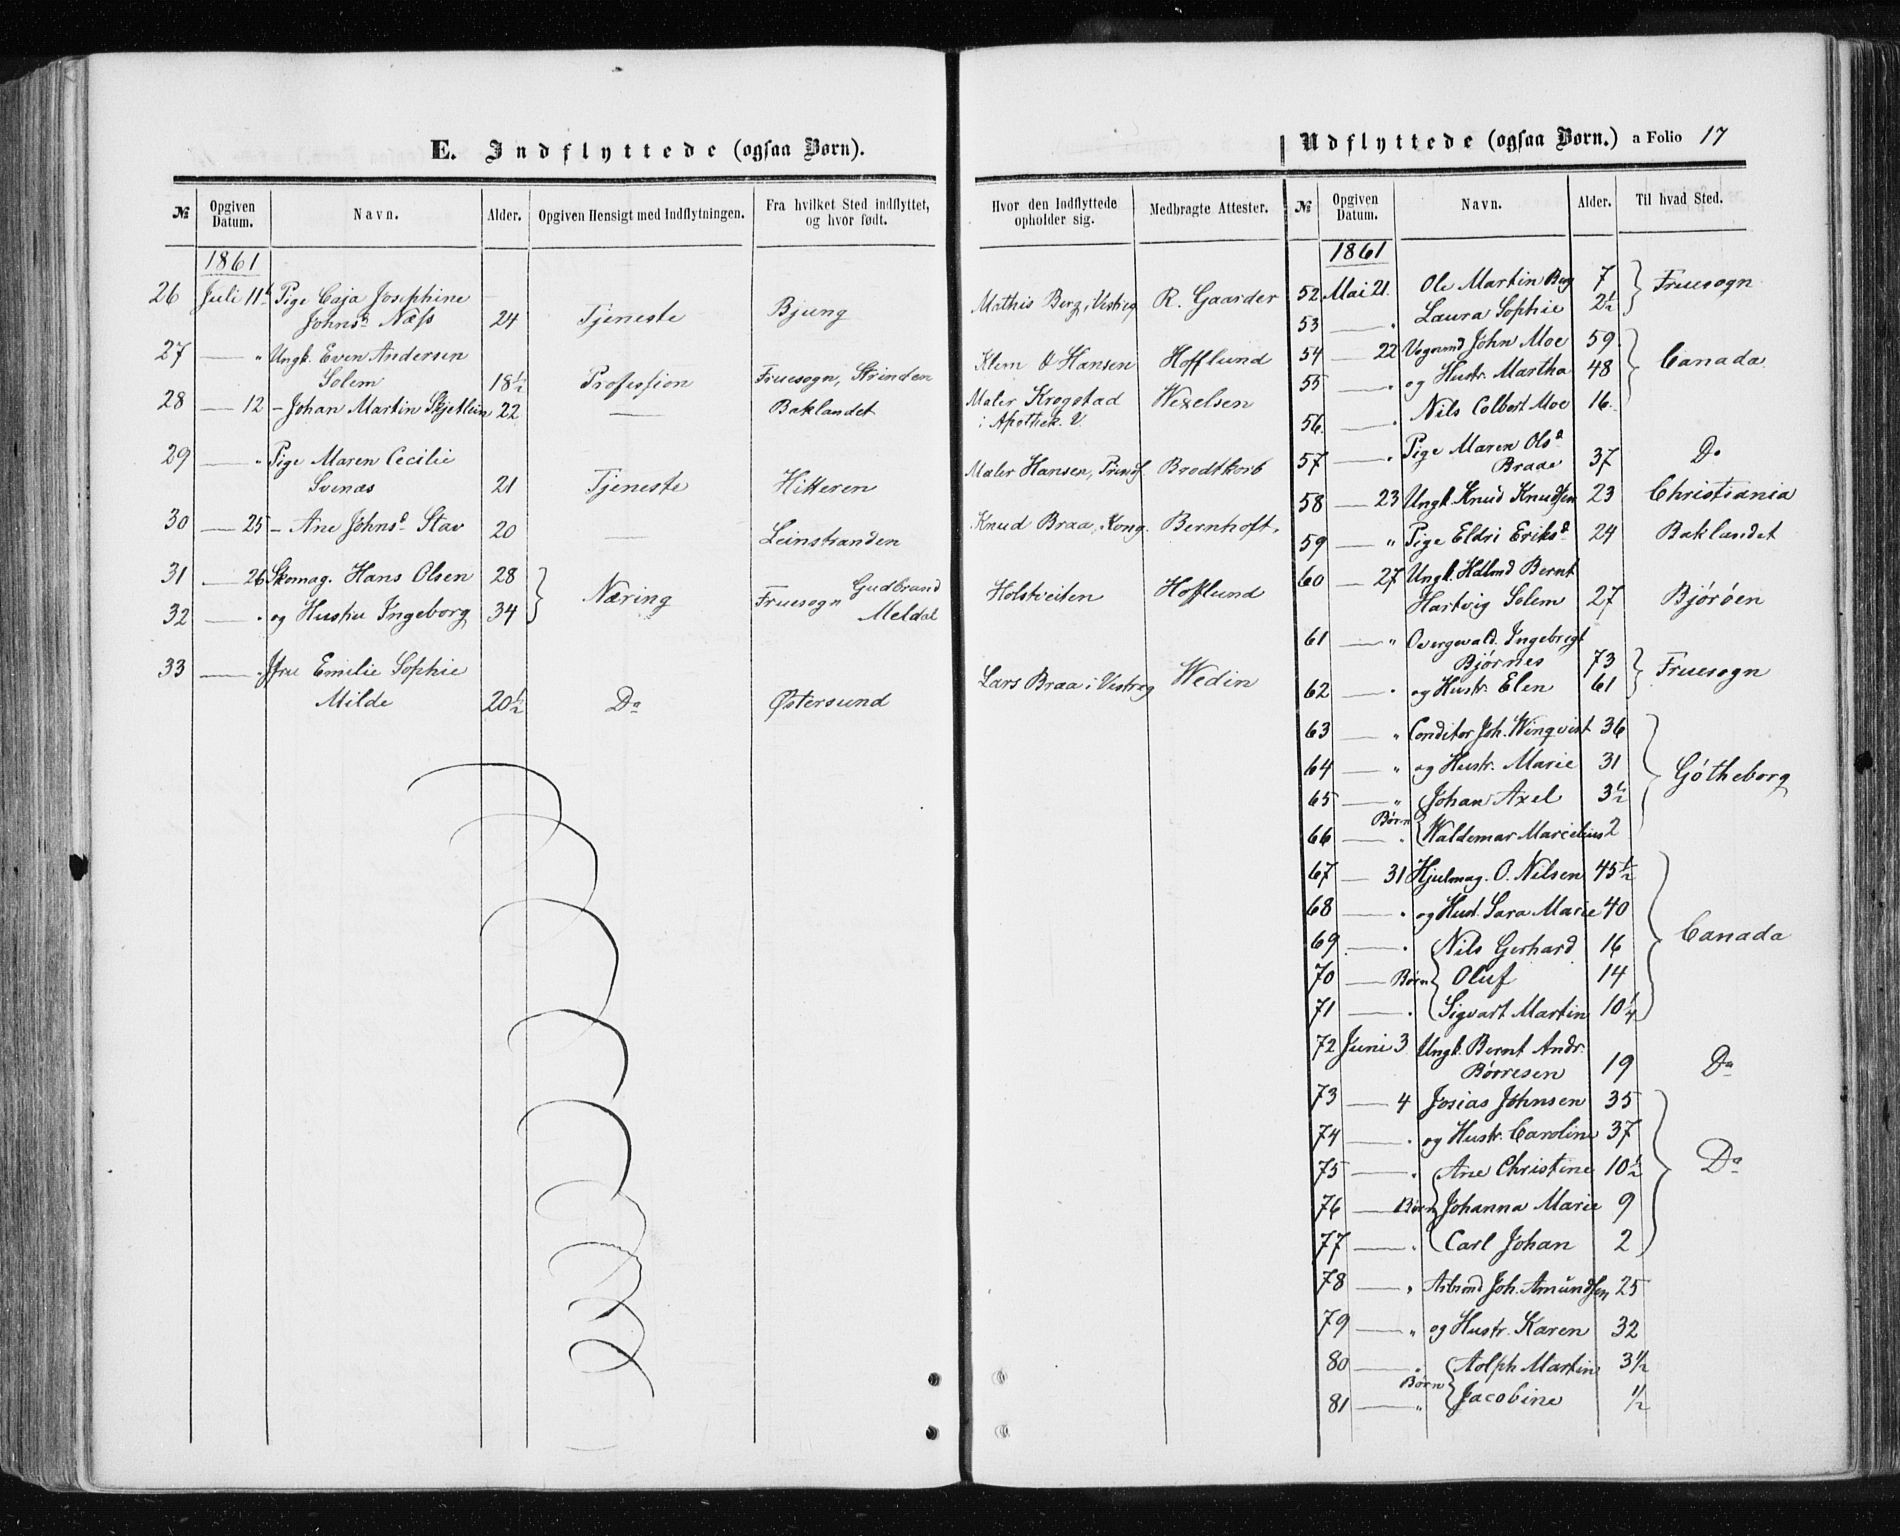 E. Indflyttede (ogsaa Børn).
№ Opgiven Datum. Navn. Alder. Opgiven Hensigt med Indflytningen. Fra hvilket Sted indflyttet, og hvor født.
1861
26 Juli 11 Pige Caja Josephine
Johnsd Næss 24 Tjeneste Bjung
27 — " Ungk. Even Andersen
Solem 18½ Profession Fruesogn, Strinden
28 — 12 – Johan Martin Skjetlein 22 — Baklandet
29 — " Pige Maren Cecilie
Svenas 21 Tjeneste Hitteren
30 — 25 – Ane Johnsd Stav 20 — Leinstranden
31 — 26 Skomag. Hans Olsen 28 Næring Fruesogn Gudbrand
32 — " og Hustru Ingeborg 34 Meldal
33 — " Jfru Emilie Sophie
Milde 20½ Do Østersund
Udflyttede (ogsaa Børn.) a Folio 17
Hvor den Indflyttede opholder sig. Medbragte Attester.
Mathis Berg, i Vestreg R. Gaarder
Klem O Hansen Hofflund
Maler Krogstad Wexelsen
i Apothek. V.
Maler Hansen, Prindf. Brodtkorb
Knud Braa, Kong. Bernhoft.
Holstveiten Hofflund
Lars Braa i Vestreg Wedin
№ Opgiven Datum. Navn. Alder. Til hvad Sted.
1861
52 Mai 21. Ole Martin Berg 7 Fruesogn
53 — " Laura Sophie 2½
54 — 22 Vognmd John Moe 59 Canada
55 — " og Hustr. Martha 48
56. — " Nils Colbort Moe 16
57 — " Pige Maren Olsd
Braae 37 Do
58 — 23 Ungk. Knud Knudsen 23 Christiania
59 — " Pige Eldri Eriksd 24 Baklandet
60 — 27 Ungk. Hdlmd Bernt
Hartvig Solem 27 Bjørøen
61 — " Overgevald. Ingebrigt
Bjørnes 73 Fruesogn
62 — " og Hustr. Elen 61
63 — " Conditor Joh. Winqvist 36 Gøtheborg
64 — " og Hustr. Marie 31
65 — " Johan Axel 3½
66 — " Børn Waldemar Marcelius 2
67 — 31 Hjulmag. O. Nilsen 45½ Canada
68 — " og Hust. Sara Marie 40
69 — " Nils Gerhard 16
70 — Børn Oluf 14
71 — " Sigvart Martin 10¼
72 Juni 3 Ungk. Bernt Andr.
Børresen 19 Do
73 — 4 Josias Johnsen 35 Do
74 — " og Hustr. Caroline 37
75 — " Ane Christine 10½
76 — Børn Johanna Marie 9
77 — " Carl Johan 2
78 — " Arbmd Joh. Amundsen 25
79 — " og Hustr. Karen 32
80 — " Adolph Martin 3½
81 — " Børn Jacobine ½